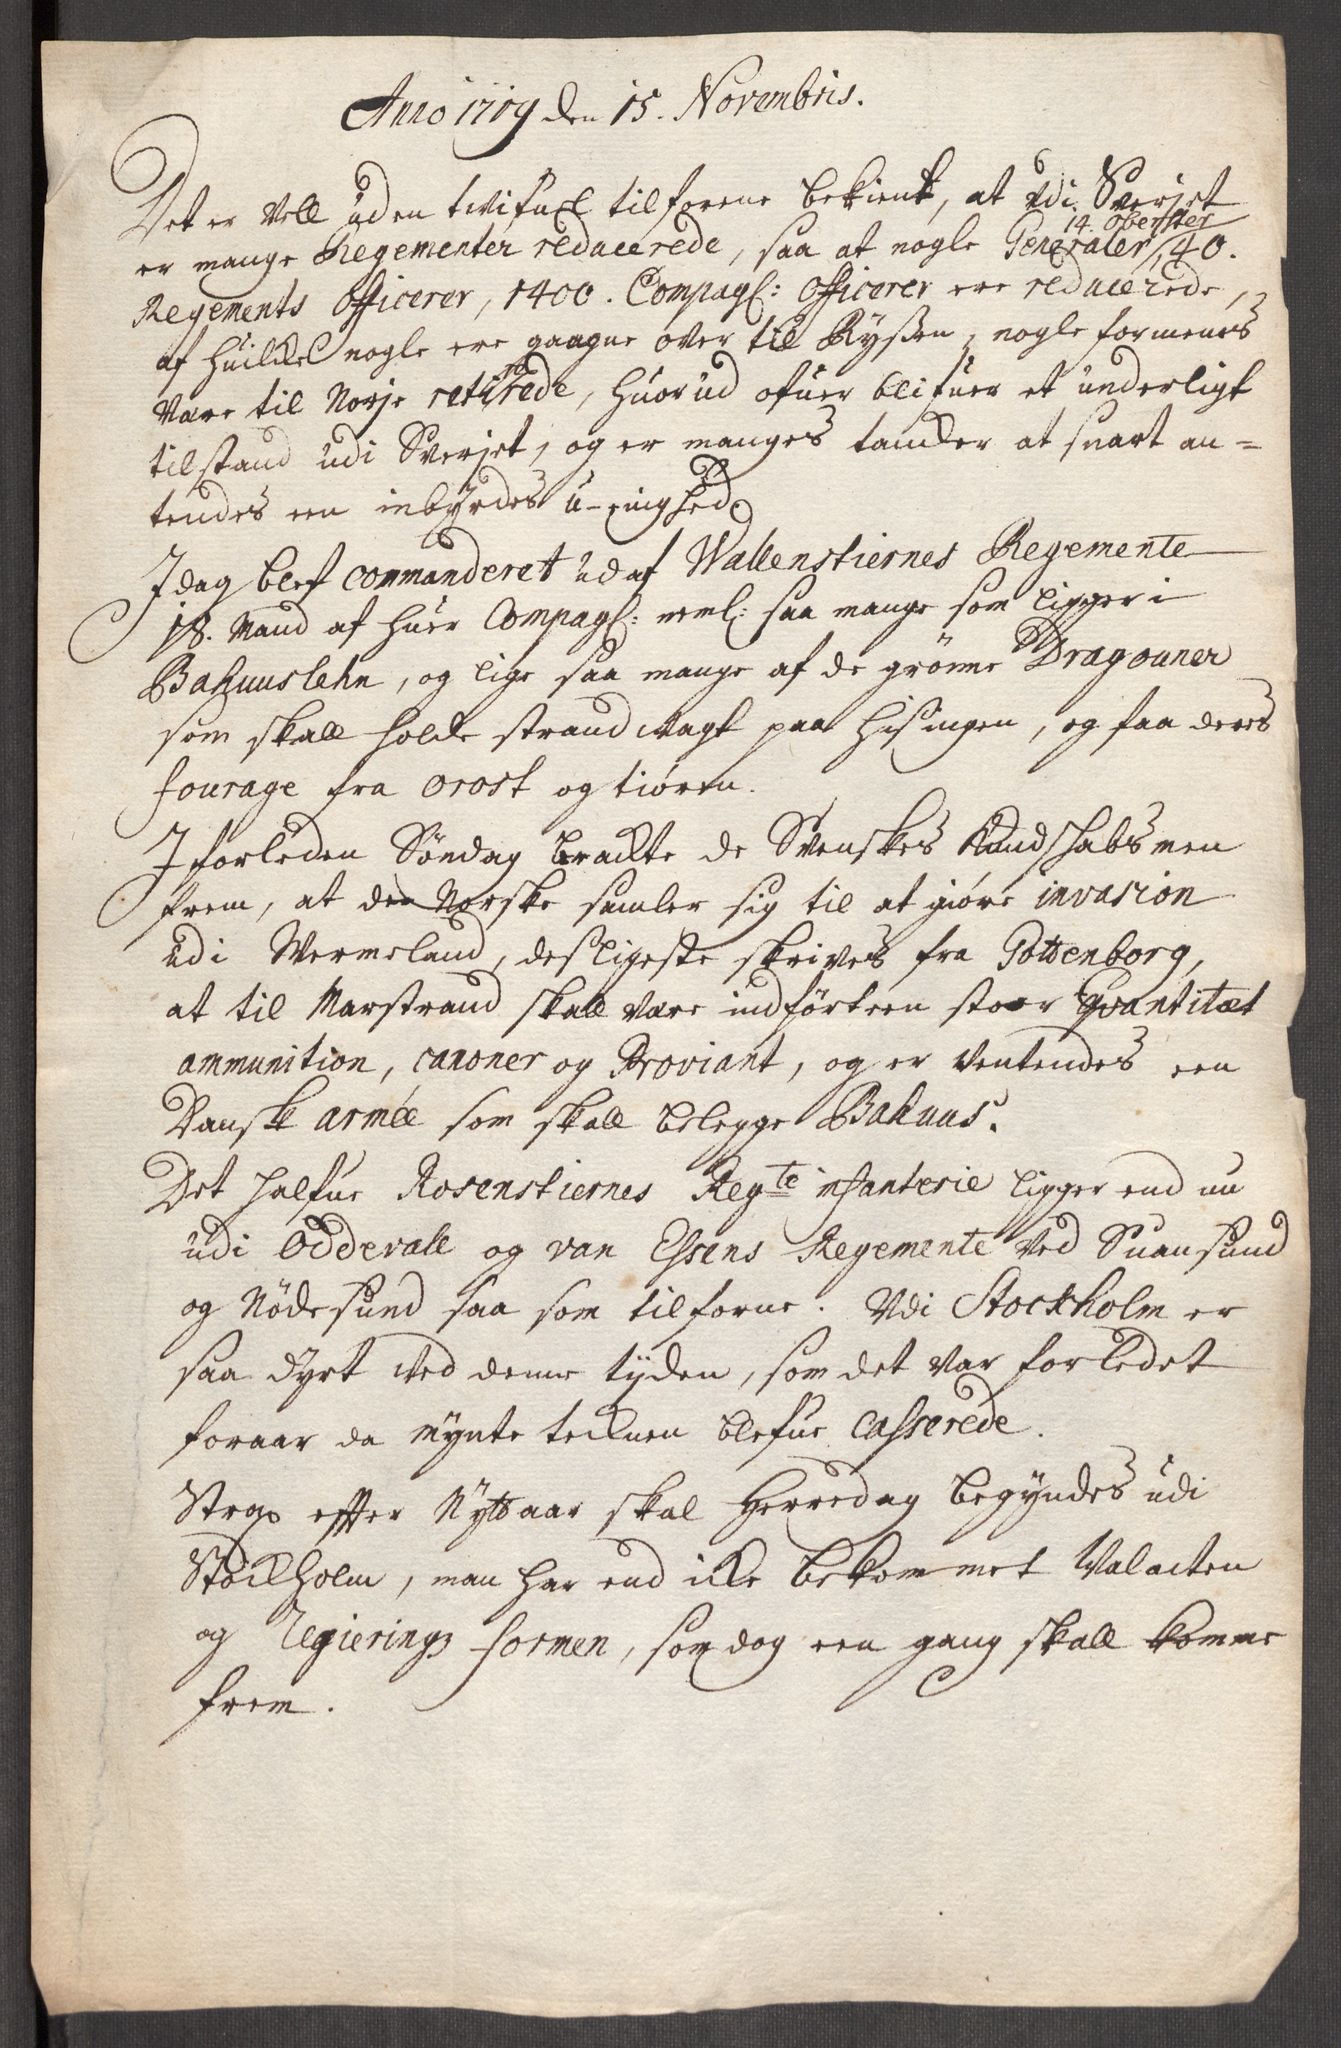 Anno 1719 den 15. Novembris.
Det er vell uden twifuel tilforene bekient, at udi Sverjet
14. oberster
er mange Regementer reducerede, saa at nogle Generaler, 40.
Regements officerer, 1400. Compagl: officerer ere reducerede,
af huilcke nogle ere gaagne over til Ryssen, nogle formenes
være til Norje retirerede, huorud ofuer blifuer et underligt
tilstand udi Sverjet, og er manges tancker at snart an-
tendes een inbyrdes u-einghed.
I dag blef commanderet ud af Wallenstiernes Regemente
18. Mand af huer Compagl: neml: saa mange som ligger i
Bahuuslehn, og lige saa mange af de grönne Dragouner
som skall holde strand wagt paa Hisingen, og faa deres
fourage fra Orost og Tiören.
I forleden Söndag brackte de Svenskes Kundskabsmen
frem, at den Norske samler sig til at giöre invasion
udi Wermeland, desligeste skrives fra Gottenborg,
at til Marstrand skall være indfört een stoor Qvantitæt
ammunition, canoner og Proviant, og er ventendes een
Dansk armée som skall belegge Bahuus.
Det halfue Rosenstiernes Regte infanterie ligger end nu
udi Oddevall og van Essens Regemente ved Suansund
og Nödesund saa som tilforne. Udi Stockholm er
saa dyrt ved denne tijden, som det var forledet
foraar da mynte tecknen blefue casserede.
Strax effter Nyttaar skal Herredag begyndes udi
Stockholm, man har end icke bekommet Valacten
og Regierings formen, som dog een gang skall komme
frem.